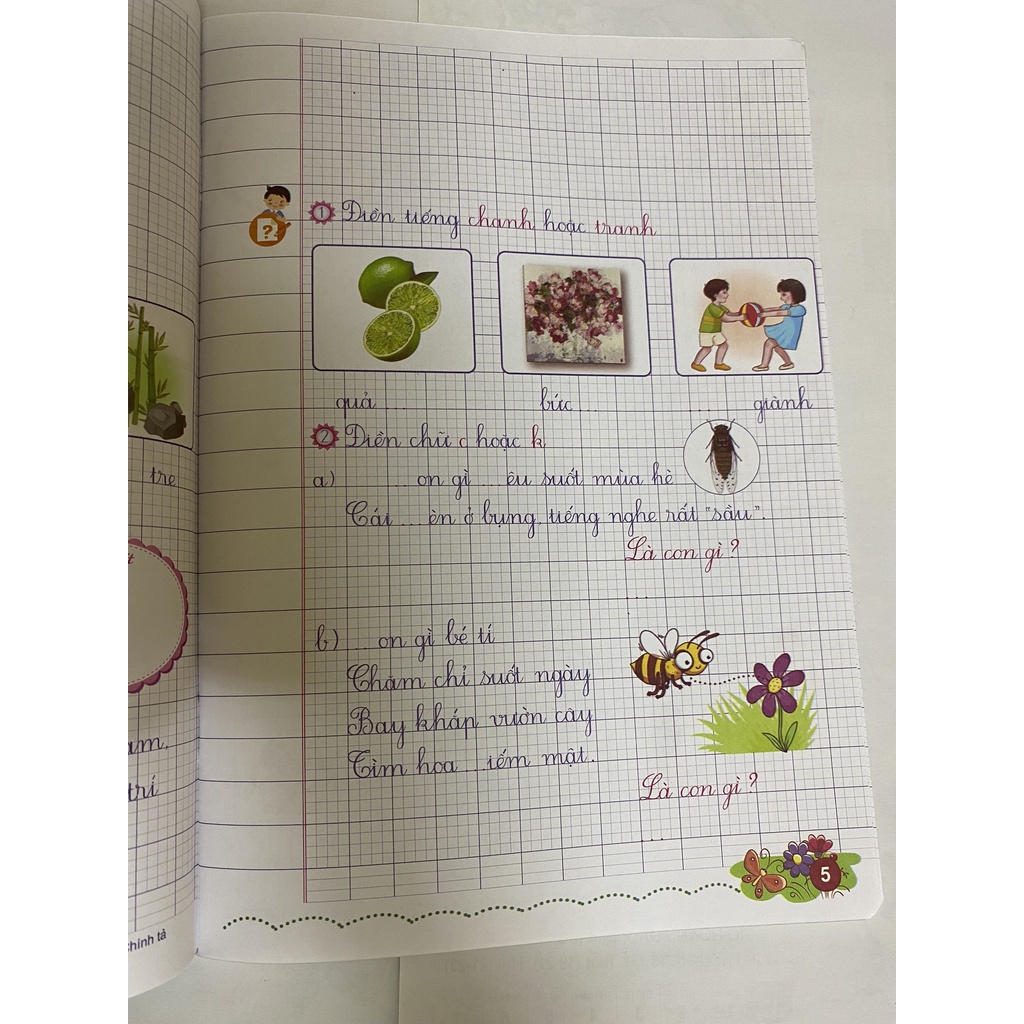 1 Điền tiếng chanh hoặc tranh
quả ... bức ... .... giành
2 Điền chữ c hoặc k
a) ... on gì ... êu suốt mùa hè
Cái ... èn ở bụng, tiếng nghe rất "sầu".
Là con gì ?
...
b) ... on gì bé tí
Chăm chỉ suốt ngày
Bay khắp vườn cây
Tìm hoa ... iếm mật.
Là con gì ?
...
5
tre
trí